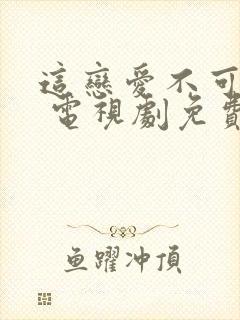 這戀愛不可
電視劇免費
魚躍冲頂